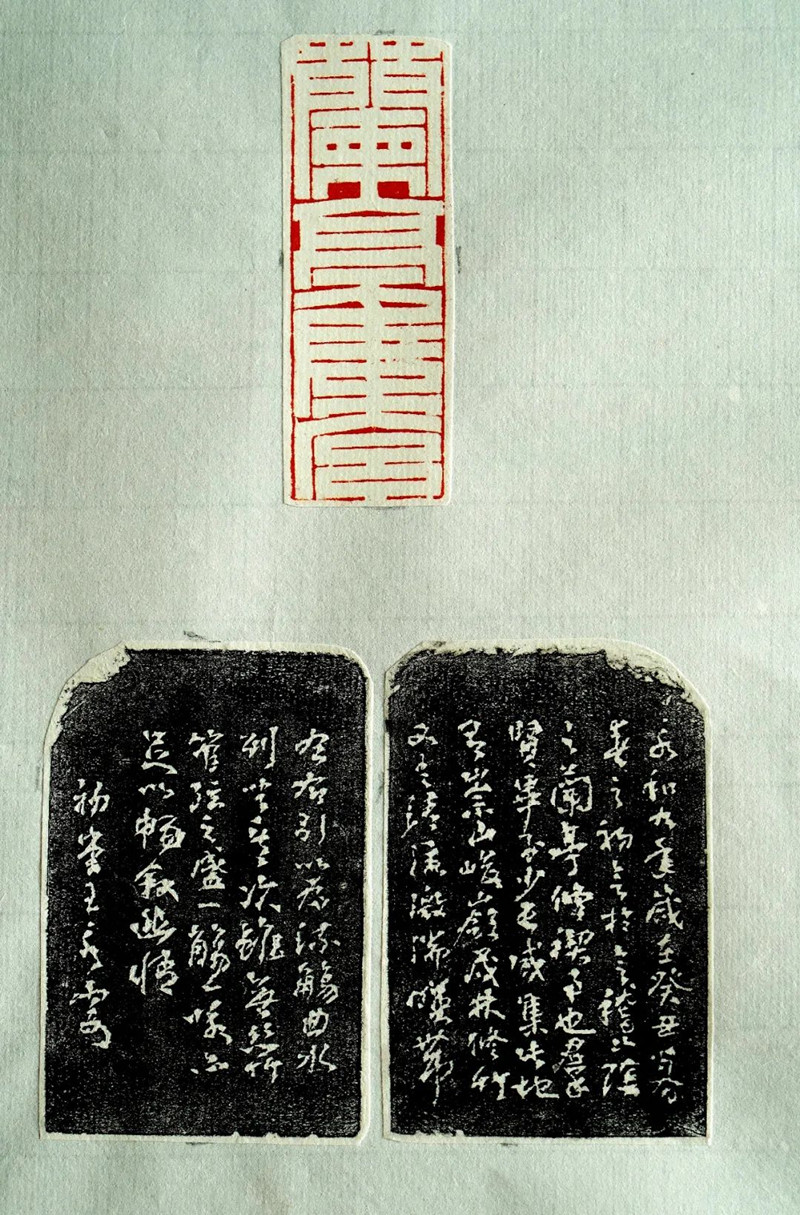 蘭亭
永和九年歲在癸丑暮
春之初會於會稽山陰
之蘭亭脩禊事也群
賢畢至少長咸集此地
有崇山峻嶺茂林脩竹
又有清流激湍暎帶
左右引以為流觴曲水
列坐其次雖無絲竹
管弦之盛一觴一詠亦
足以暢敘幽情